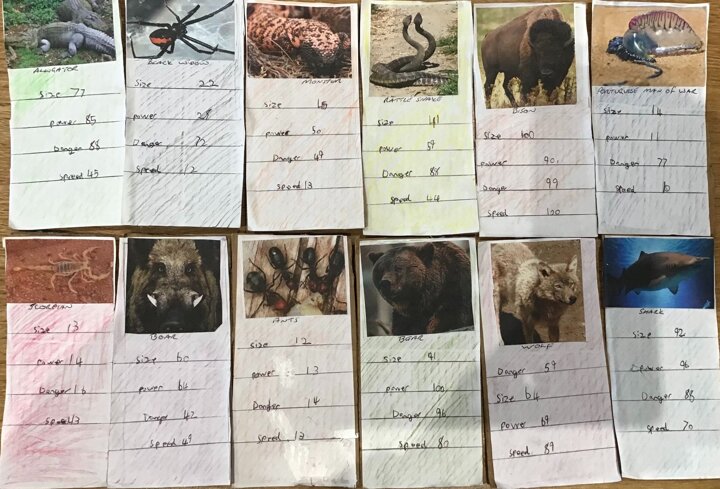 ALLIGATOR
Size 77
power 85
Danger 88
Speed 45
BLACK WIDOW
Size 22
power
Danger 82
Speed 12
MONSTOR
Size
power 50
Danger 49
Speed 13
RATTLE SNAKE
Size 41
power 59
Danger 88
Speed 44
BISON
Size 100
power 90
Danger 99
Speed 100
PORTUGUESE MAN OF WAR
Size 14
power 11
Danger 77
Speed 10
SCORPIAN
Size 13
power 14
Danger 16
Speed 13
BOAR
Size 60
power 64
Danger 42
Speed 49
ANTS
Size 12
power 13
Danger 14
Speed 13
BEAR
Size 91
power 100
Danger 96
Speed
WOLF
Danger 59
Size 64
power 69
Speed 89
SHARK
Size 92
power 96
Danger 88
Speed 70